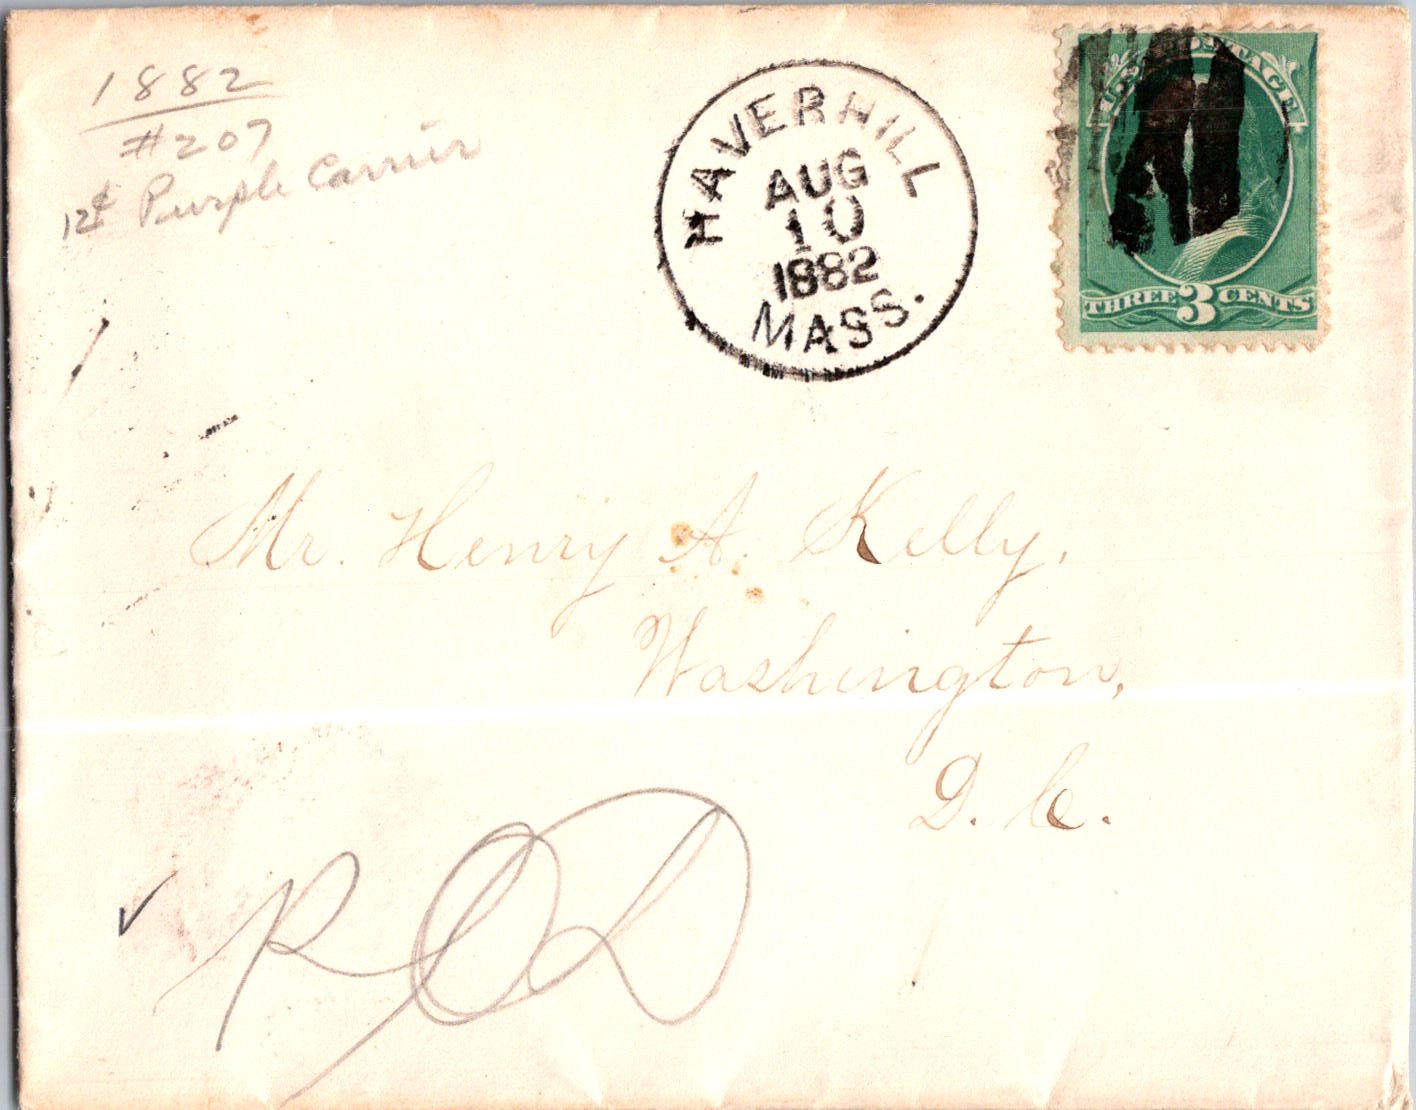 1882
#207
12¢ Purple Carrier
HAVERHILL
AUG
10
1882
MASS.
U.S. POSTAGE
THREE 3 CENTS
Mr. Henry A. Kelly,
Washington,
D. C.